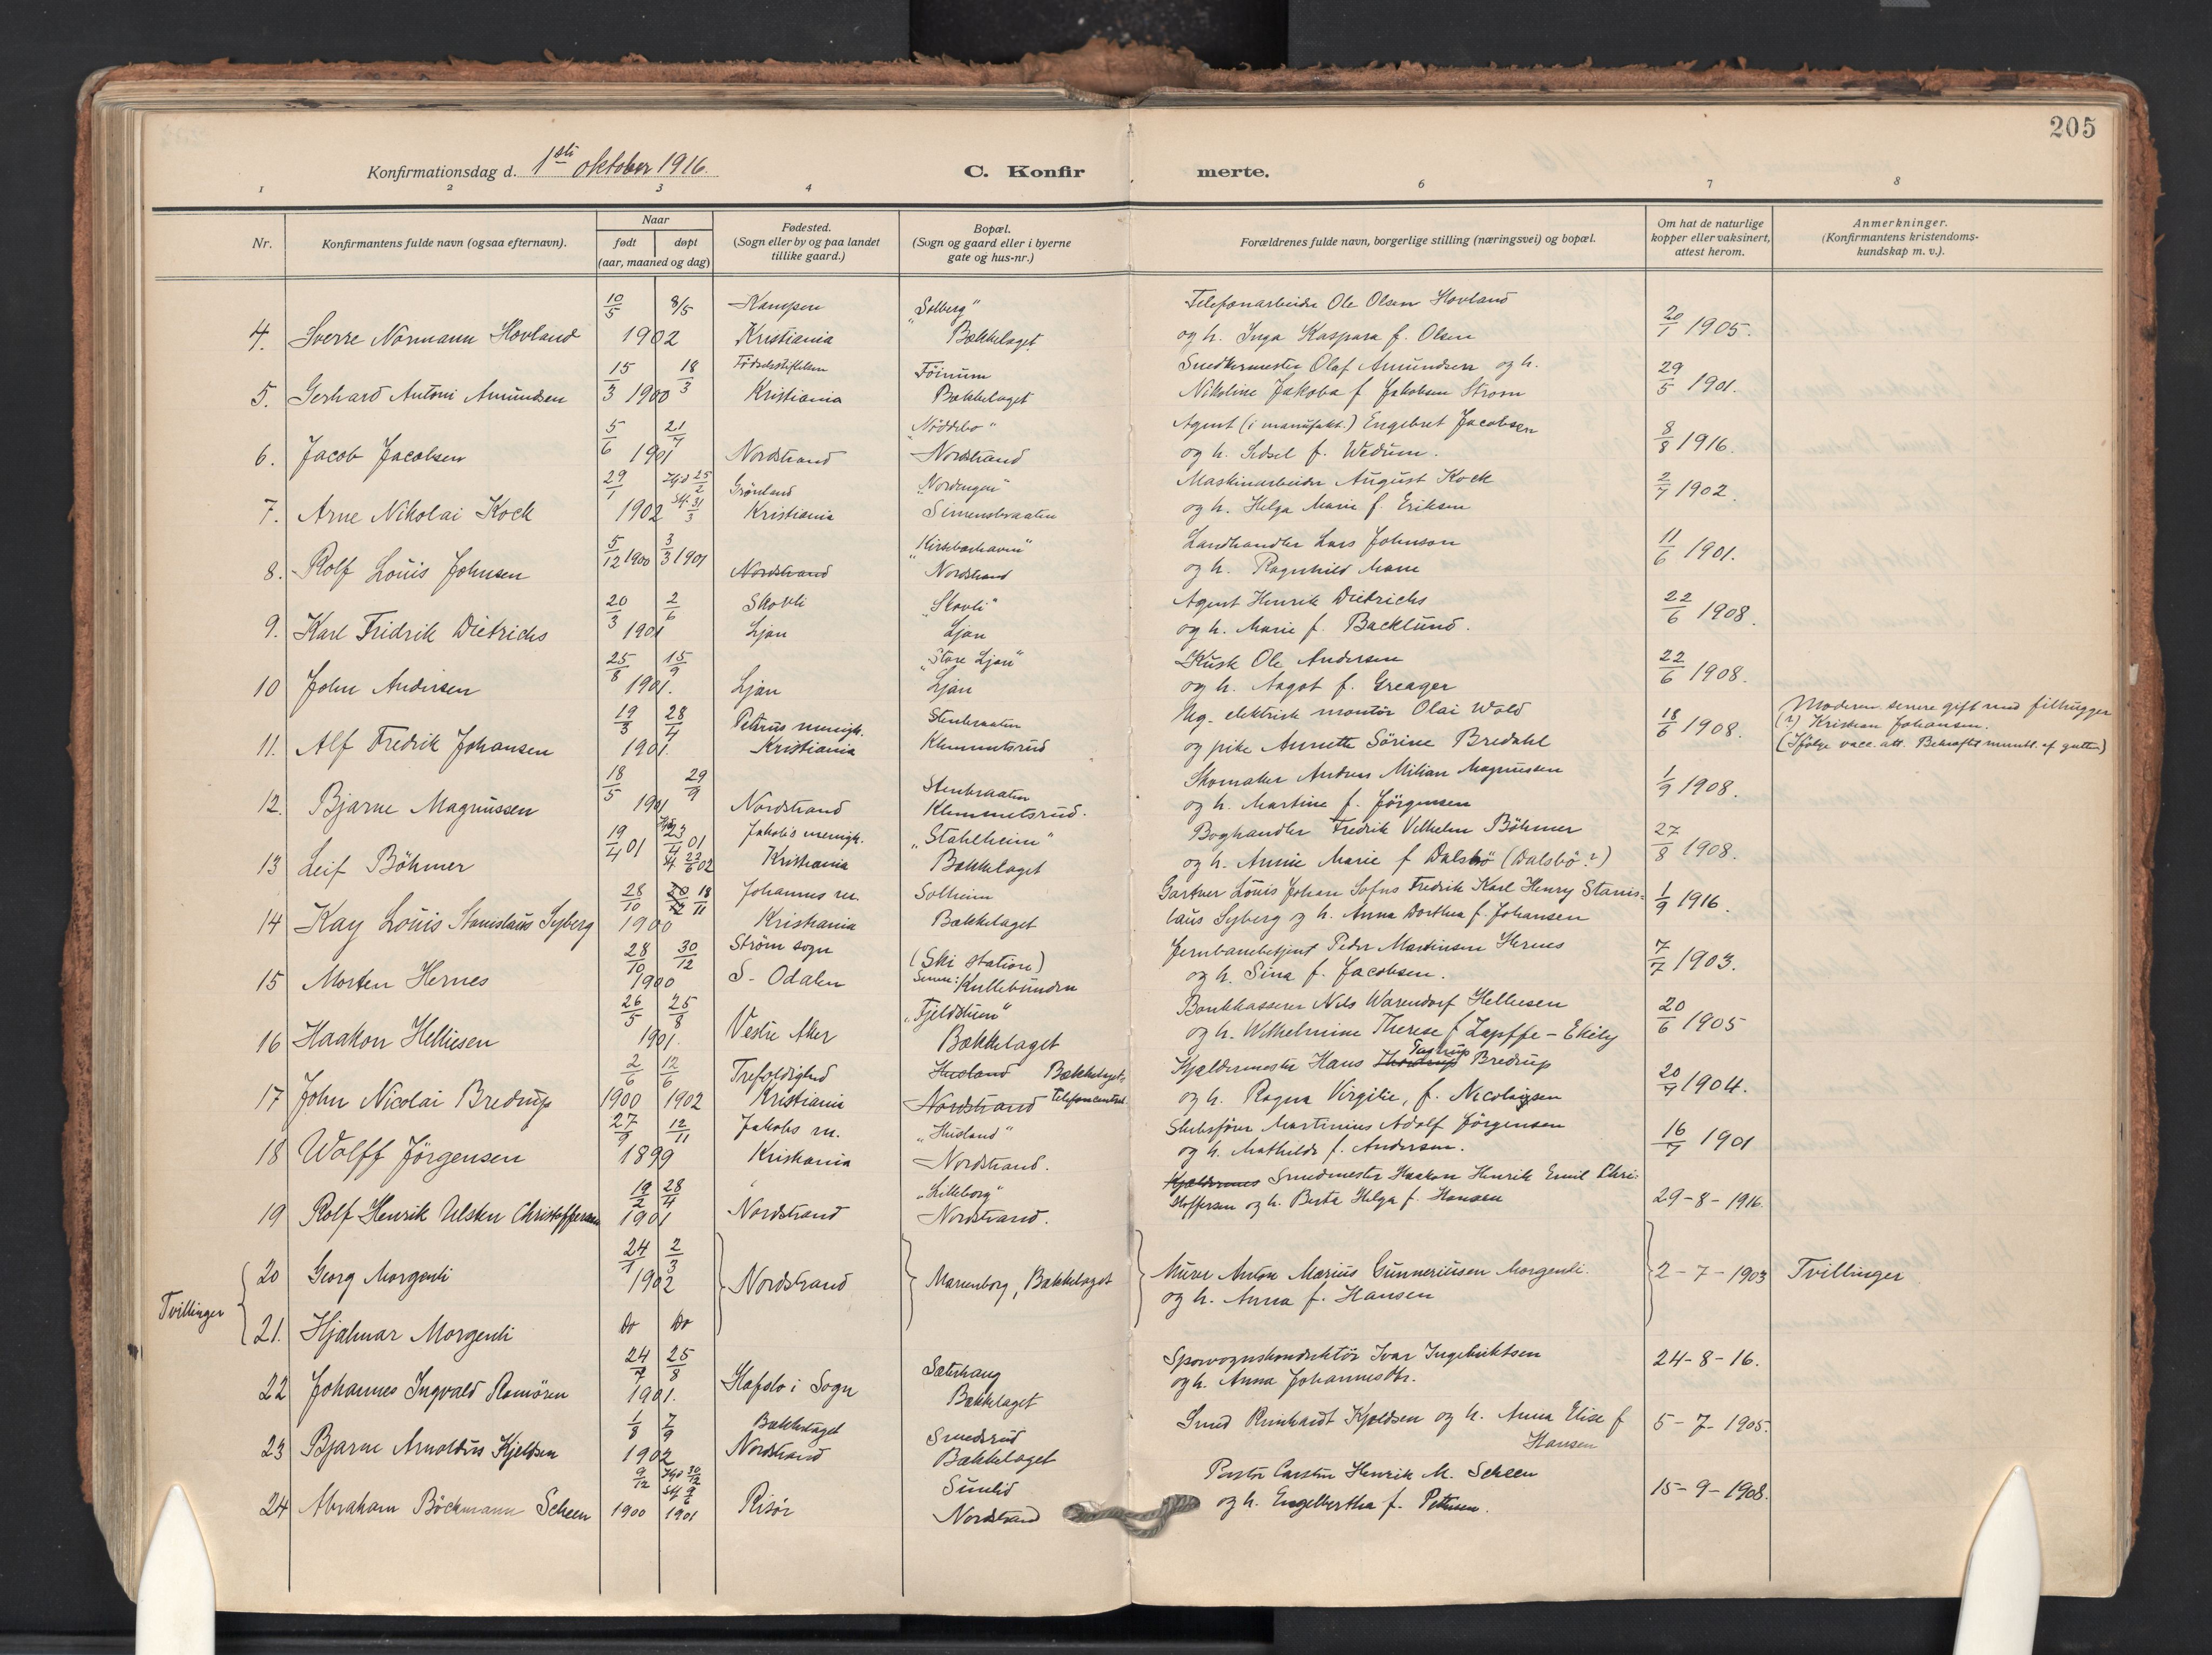 205
Konfirmationsdag d. 1ste oktober 1916.
C. Konfirmerte.
1 2 3 4 6 7 8
Nr.
Konfirmantens fulde navn (ogsaa efternavn).
Naar
født døpt
(aar, maaned og dag)
Fødested.
(Sogn eller by og paa landet
tillike gaard.)
Bopæl.
(Sogn og gaard eller i byerne
gate og hus-nr.)
Forældrenes fulde navn, borgerlige stilling (næringsvei) og bopæl.
Om hat de naturlige
kopper eller vaksinert,
attest herom.
Anmerkninger.
(Konfirmantens kristendoms-
kundskap m. v.).
10/5 8/5 Kampen "Solberg" Telefonarbeider Ole Olsen Hovland
4. Sverre Normann Hovland 1902 Kristiania Bækkelaget og h. Inga Kaspara f. Olsen 20/1 1905.
15/3 18/3 Fødselsstiftelsen Snedkermester Olaf Amundsen og h.
5. Gerhard Antoni Amundsen 1900 Kristiania Bækkelaget Nikoline Jakoba f Jakobsen Strøm 29/5 1901.
5/6 21/7 "Nøddebo" Agent (i manufakt.) Engebret Jacobsen
6. Jacob Jacobsen 1901 Nordstrand Nordstrand og h. Sidsel f. Wedum. 8/8 1916.
29/1 Hjd 25/2 Grønland "Nordengen" Maskinarbeider August Kock
7. Arne Nikolai Kock 1902 St. 31/3 Kristiania Simensbraaten og h. Helga Marie f. Eriksen 2/7 1902.
5/12 1900 3/3 1901 "Kirsebærhaven" Landhandler Lars Johnson
8. Rolf Louis Johnsen Nordstrand Nordstrand og h. Ragnhild Marie 11/6 1901.
20/3 2/6 Skovli "Skovli" Agent Henrik Dietrichs
9. Karl Fridrik Dietrichs 1901 Ljan Ljan og h. Marie f. Backlund. 22/6 1908.
25/8 15/9 "Store Ljan" Kusk Ole Andersen
10 John Andersen 1901. Ljan Ljan og h. Aagot f. Greager 22/6 1908.
19/3 28/4 Petrus menigh. Stenbraaten Ug. elektrisk montør Olai Wold Moderen senere gift med filhugger
11. Alf Fredrik Johansen 1901. Kristiania Klemmetsrud og pike Annette Sørine Bredahl 18/6 1908. (?) Kristian Johansen.
(Ifølge vacc. att. Bekræftet mundtl. af gutten)
18/5 29/9 Stenbraaten Skomaker Anders Milian Magnussen
12. Bjarne Magnussen 1901 Nordstrand Klemmetsrud. og h. Martine f. Jørgensen 1/9 1908.
19/4 01 Hjd 23/4 01 Jakobs menigh. "Stahlheim" Boghandler Fredrik Vilhelm Böhmer
13 Leif Böhmer St 23/6 02 Kristiania Bækkelaget og h. Annie Marie f Dalsbø (Dalsbö?) 27/8 1908.
28/10 18/11 Johannes m. Solheim Gartner Louis Johan Sofus Fredrik Karl Henry Stanis-
14 Kay Louis Stanislaus Syberg 1900 Kristiania Bækkelaget laus Syberg og h. Anna Dorthea f. Johansen 1/9 1916.
28/10 30/12 Strøm sogn (Ski station) Jernbanebetjent Peder Martinsen Hernes
15 Morten Hernes 1900 S. Odalen Senere: Kullebunden og h. Sina f. Jacobsen. 7/7 1903.
26/5 25/8 "Fjeldheim" Bankkasserer Nils Warendorf Helliesen
16 Haakon Helliesen 1901. Vestre Aker Bækkelaget og h. Wilhelmine Therese f Zapffe - Ekely 20/6 1905
2/6 12/6 Trefoldighed Husland Bækkelagets Kjældermester Hans Thordrup Tastrup Bredrup
17 John Nicolai Bredrup 1900 1902 Kristiania Nordstrand Telefoncentral. og h. Ragna Virgilie, f. Nicolaysen 20/7 1904.
27/9 12/11 Jakobs m. "Husland" Skibsfører Martinius Adolf Jörgensen
18 Wolff Jörgensen 1899 Kristiania Nordstrand. og h. Mathilde f. Andersen. 16/7 1901
19/2 28/4 "Lilleborg" Smedmester Haakon Henrik Emil Chri-
19 Rolf Henrik Ulsten Christoffersen 1901 Nordstrand Nordstrand. stoffersen og h. Berta Helga f. Hansen 29-8-1916.
24/1 2/3
20 Georg Morgenli 1902 Nordstrand Marienborg, Bækkelaget Murer Anton Marius Gunneriusen Morgenli 2-7-1903 Tvillinger
og h. Anna f. Hansen
Tvillinger
21. Hjalmar Morgenli Do Do
24/7 25/8 Sæterhaug Sporvognskonduktør Ivar Ingebriktsen 24-8-16.
22 Johannes Ingvald Rømören 1901. Hafslo i Sogn Bækkelaget og h. Anna Johannesdtr.
1/8 7/9 Bækkelaget Smedsrud Smed Reinhardt Kjeldsen og h. Anna Elise f 5-7-1905.
23 Bjarne Arnoldus Kjeldsen 1902 Nordstrand Bækkelaget Hansen
9/12 Hjd 30/12 Sunlid Pastor Carsten Henrik M. Scheen
St 9/6
24 Abraham Böckmann Scheen 1900 1901 Risør Nordstrand og h. Engelbertha f. Petersen. 15-9-1908.